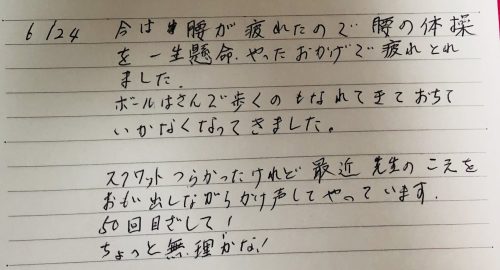 6/24 今は腰が疲れたので腰の体操
を一生懸命.やったおかげで疲れとれ
ました.
ボールはさんで歩くのもなれてきておちて
いかなくなってきました。
スクワットつらかったけれど最近先生のこえを
おもい出しながらかけ声してやっています.
50回目ざして!
ちょっと無理かな!